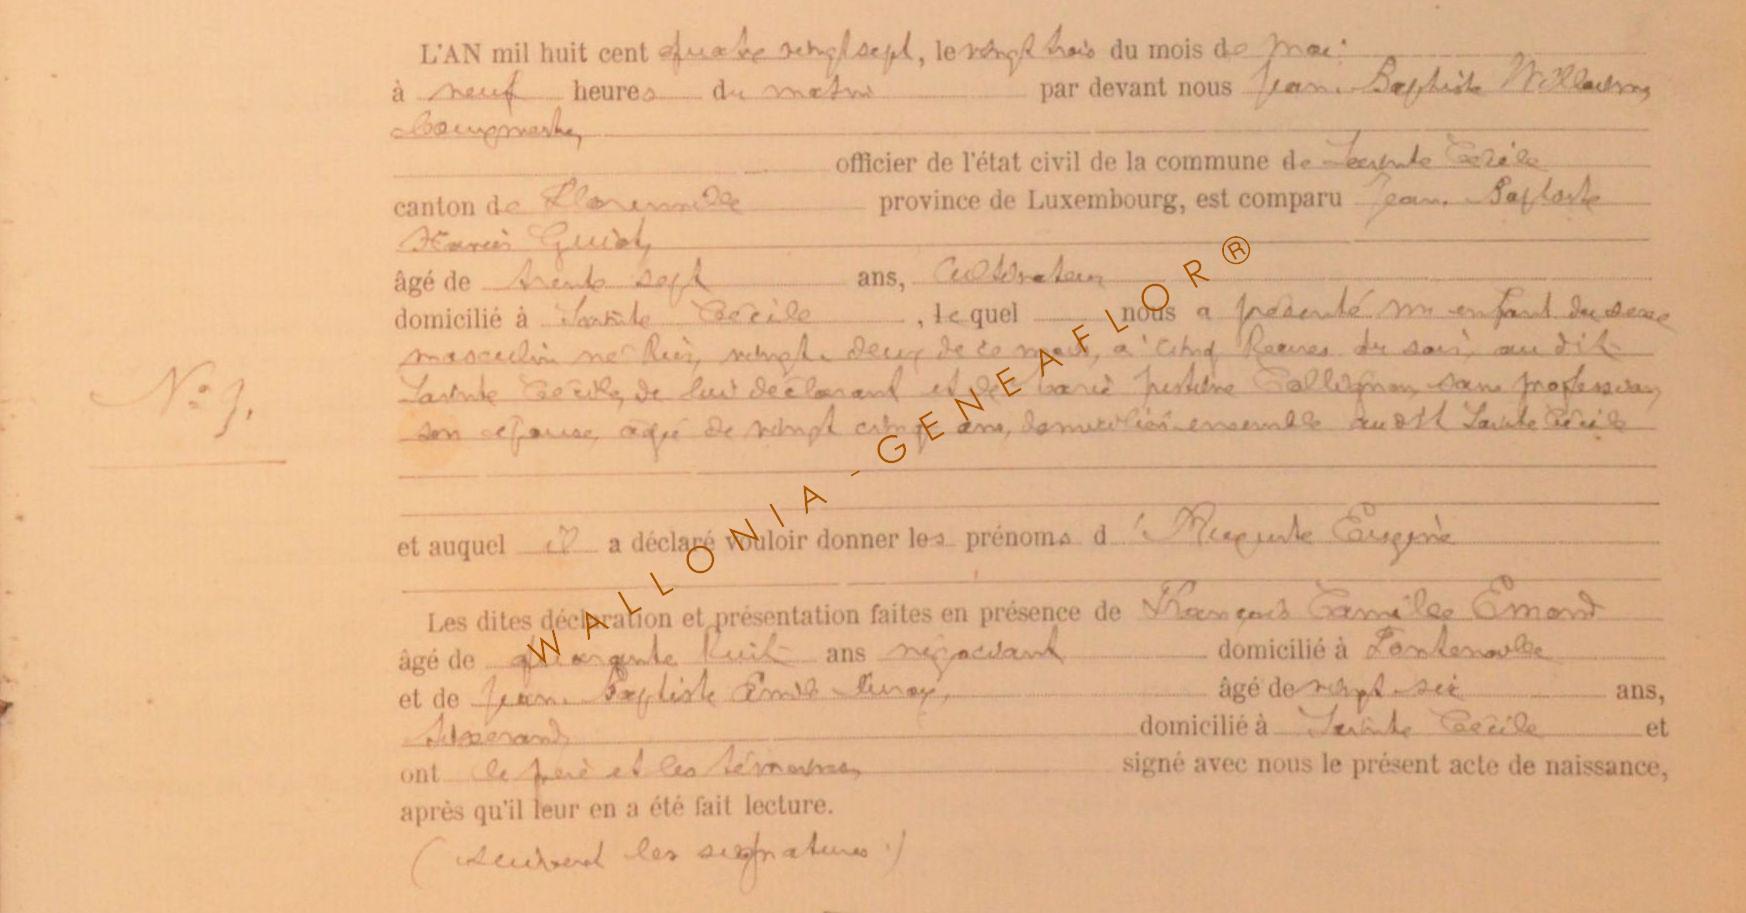 L'AN mil huit cent quatre vingt sept, le vingt trois du mois de Mai
à neuf heures du matin par devant nous Jean Baptiste Willaems
bourgmestre,
officier de l'état civil de la commune de Sainte Cécile
canton de Florenville province de Luxembourg, est comparu Jean Baptiste
Xavier Guiot,
âgé de trente sept ans, Cultivateur
domicilié à Sainte Cécile, le quel nous a présenté un enfant du sexe
masculin né hier, vingt deux de ce mois, à cinq heures du soir, au dit
N° 9.
Sainte Cécile, de lui déclarant et de Marie Justine Collignon, sans profession,
son épouse, âgée de vingt cinq ans, domiciliés ensemble au dit Sainte Cécile
et auquel il a déclaré vouloir donner les prénoms d'Auguste Eugène
Les dites déclaration et présentation faites en présence de François Camille Emond
âgé de quarante huit ans négociant domicilié à Fontenoille
et de Jean Baptiste Emile âgé de vingt six ans,
tisserand, domicilié à Sainte Cécile et
ont le père et les témoins, signé avec nous le présent acte de naissance,
après qu'il leur en a été fait lecture.
(suivent les signatures.)
WALLONIA-GENEAFLOR®